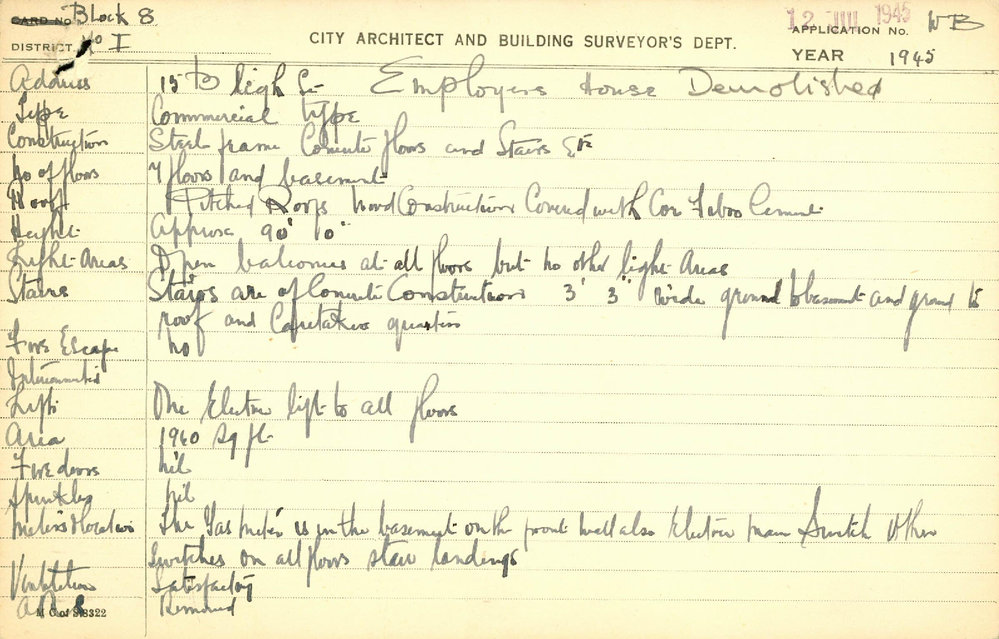 CARD NO. Block 8
DISTRICT. No I
CITY ARCHITECT AND BUILDING SURVEYOR'S DEPT.
12 JUL 1945
APPLICATION No. WB
YEAR 1945
Address 15 Bligh St Employers House Demolished
Type Commercial type
Construction Steel frame Concrete floors and Stairs Etc
No of floors 7 floors and basement
Roof Pitched Roofs Wood Construction Covered with Cor Fibro Cement
Height Approx 90' 0"
Light Areas Open balconies at all floors but no other light areas
Stairs Stairs are of Concrete Construction 3' 3" wide ground to basement and ground to
roof and Caretakers quarters
Fire Escape no
Intercommunication
Lifts One Electric lift to all floors
Area 1940 sq ft
Fire doors nil
Sprinklers nil
Meters & location The Gas meter is in the basement on the front wall also Electric main Switch Other
Switches on all floors stair landings
Ventilation Satisfactory
Removed
M C of S 8322